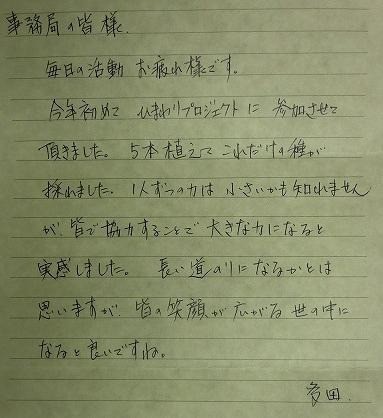 事務局の皆様.
毎日の活動 お疲れ様です。
今年初めて ひまわりプロジェクトに 参加させて
頂きました。 5本植えて これだけの種が
採れました。 1人ずつの力は 小さいかも知れません
が、皆で協力することで 大きな力になると
実感しました。 長い道のりになるかとは
思いますが、皆の笑顔が広がる 世の中に
なると良いですね。
多田.